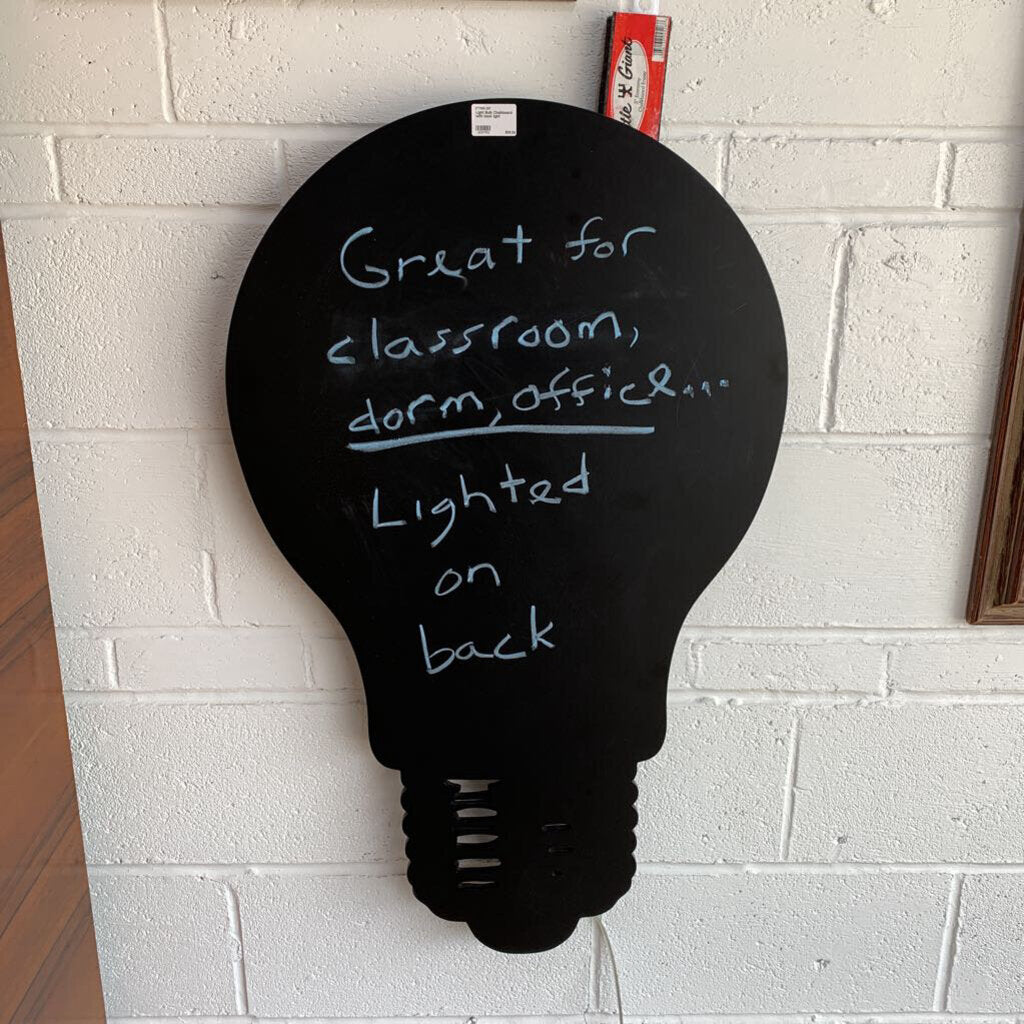 Light Bulb Chalkboard
with back light
Giant
Great for
classroom,
dorm, office...
Lighted
on
back